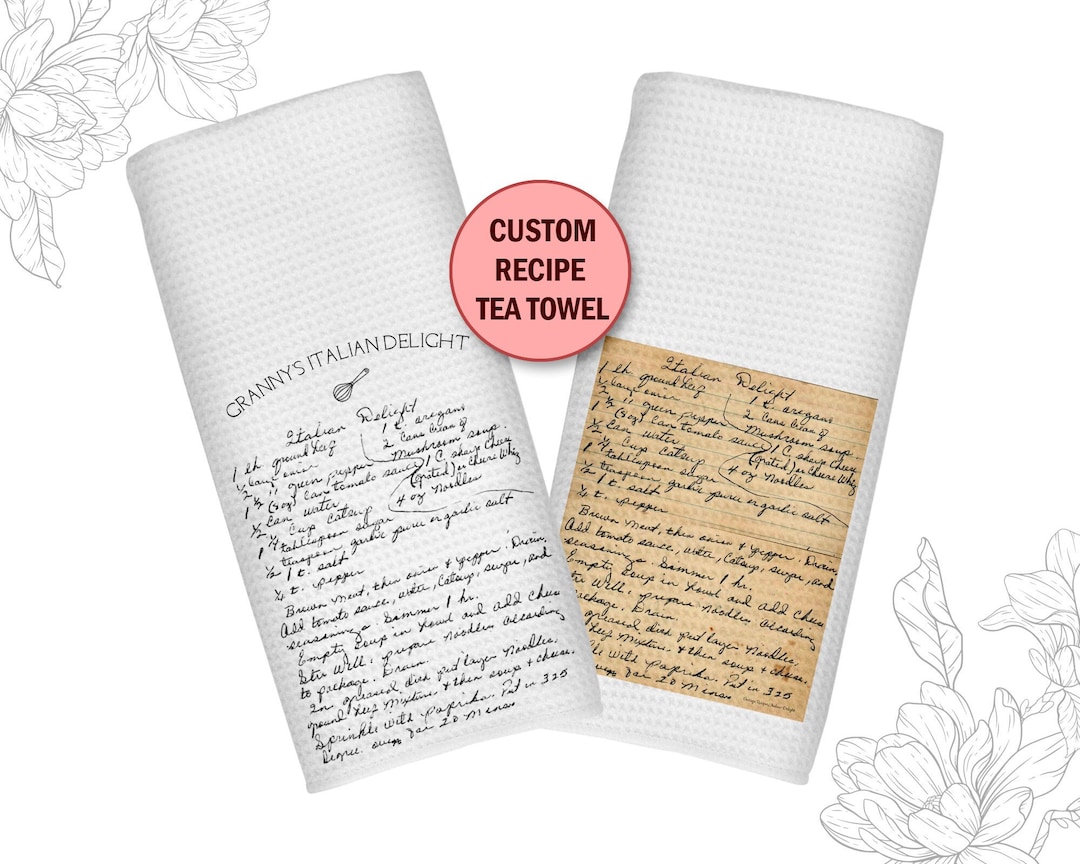 CUSTOM
RECIPE
TEA TOWEL
GRANNY'S ITALIAN DELIGHT
Italian Delight
1 lb ground beef
1 t. oregano
1/2 large onion
2 cans cream of
Mushroom soup.
1/2 " green pepper
1 C. sharp cheese
1 (8oz) can tomato sauce
(grated) or Cheese Whiz
1/2 Can water
4 oz Noodles
1/4 Cup Catsup
1 tablespoon sugar
1/2 teaspoon garlic puree or garlic salt
1 t. salt
1/4 t. pepper
Brown Meat, then onion & pepper. Drain,
Add tomato sauce, water, Catsup, sugar, and
seasonings Simmer 1 hr.
Empty Soup in bowl and add Cheese
Stir Well. prepare Noodles according
to package. Drain.
In greased dish put layer Noodles,
ground beef Mixture & then soup & cheese.
Sprinkle With Paprika. Put in 325
Degree oven for 20 Mins
Italian Delight
1 lb ground beef
1 t. oregano
1/2 large onion
2 cans cream of
Mushroom soup
1/2 " green pepper
1 C. sharp cheese
1 (8oz) can tomato sauce
(grated) or Cheese Whiz
1/2 Can water
4 oz Noodles
1/4 Cup Catsup
1 tablespoon sugar
1/2 teaspoon garlic puree or garlic salt
1 t. salt
1/4 t. pepper
Brown Meat, then onion & pepper. Drain,
Add tomato sauce, water, Catsup, sugar, and
seasonings Simmer 1 hr.
Empty Soup in bowl and add Cheese
Stir Well. prepare Noodles according
package. Drain.
greased dish put layer Noodles,
beef Mixture & then soup & cheese.
With Paprika. Put in 325
oven for 20 Mins